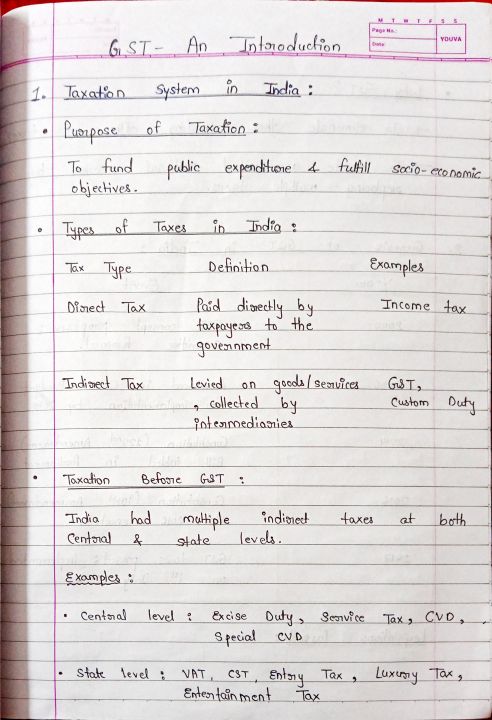 M T W T F S S
Page No.:
Date:
YOUVA
GST - An Introduction
1. Taxation System in India :
• Purpose of Taxation :
To fund public expenditure & fulfill socio-economic
objectives.
• Types of Taxes in India :
Tax Type Definition Examples
Direct Tax Paid directly by Income tax
taxpayers to the
government
Indirect Tax Levied on goods/services GST,
, collected by Custom Duty
intermediaries
• Taxation Before GST :
India had multiple indirect taxes at both
Central & state levels.
Examples :
• Central level : Excise Duty, Service Tax, CVD,
Special CVD
• State level : VAT, CST, Entry Tax, Luxury Tax,
Entertainment Tax